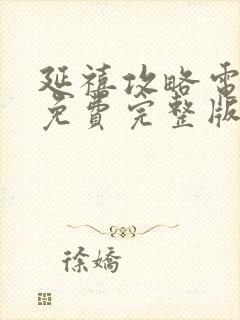 延禧攻略電
免費完整版
徐嬌